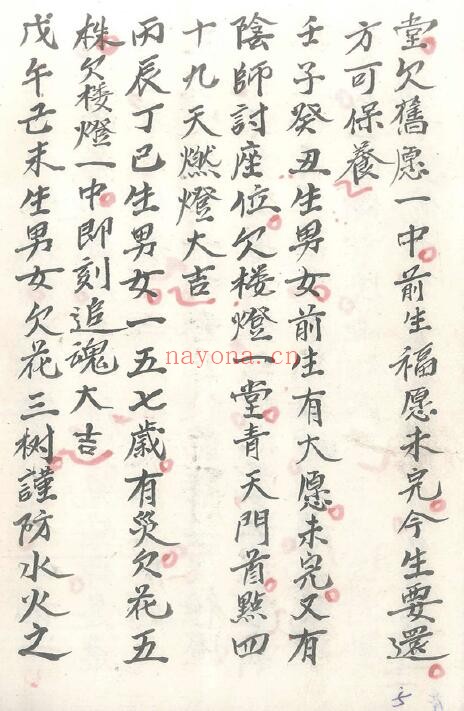 堂欠舊愿一中前生福愿未完今生要還
方可保養
壬子癸丑生男女前生有大愿未完又有
陰師討座位欠楼燈一堂青天門首點四
十九天燃燈大吉
丙辰丁巳生男女一五七歳有災欠花五
株欠楼燈一中即刻追魂大吉
戊午己未生男女欠花三树謹防水火之
nayona.cn